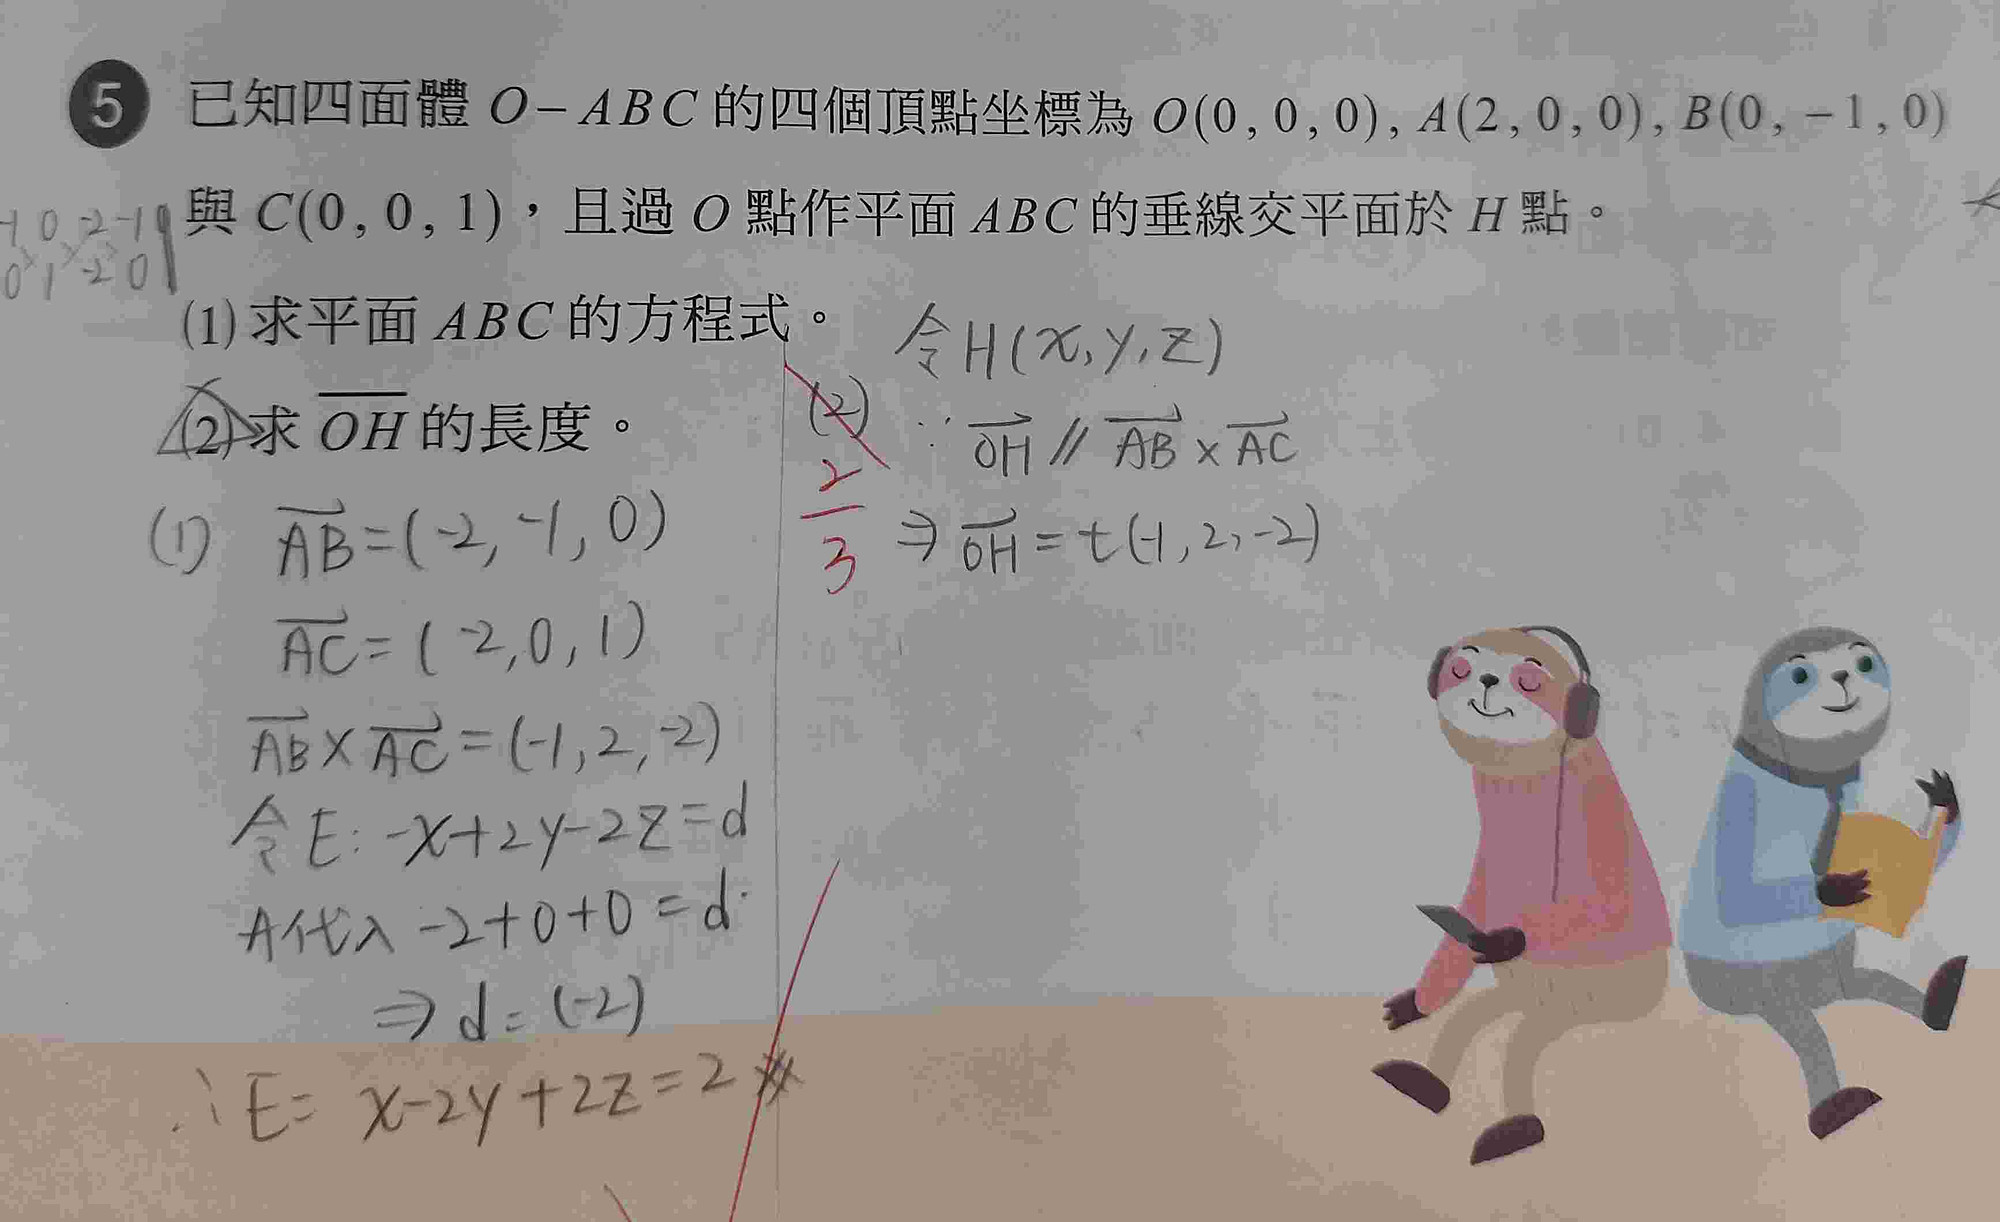 5 已知四面體 O-ABC 的四個頂點坐標為 O(0, 0, 0), A(2, 0, 0), B(0, -1, 0)
與 C(0, 0, 1)，且過 O 點作平面 ABC 的垂線交平面於 H 點。
-1 0 -2 -1
0 1 -2 0
(1) 求平面 ABC 的方程式。
(2) 求 \overline{OH} 的長度。
(1) \overrightarrow{AB}=(-2, -1, 0)
\overrightarrow{AC}=(-2, 0, 1)
\overrightarrow{AB}×\overrightarrow{AC}=(-1, 2, -2)
令E: -x+2y-2z=d
A代入 -2+0+0=d
⇒ d=(-2)
∴E= x-2y+2z=2
(2) 令H(x, y, z)
∵ \overrightarrow{OH} // \overrightarrow{AB}×\overrightarrow{AC}
⇒ \overrightarrow{OH}=t(-1, 2, -2)
2/3